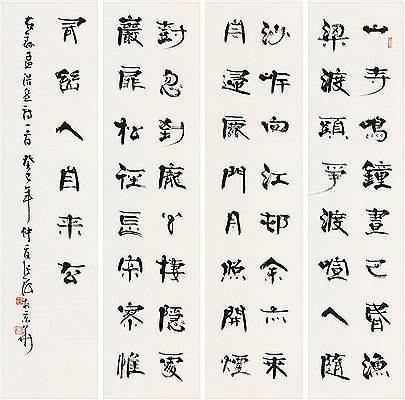 山寺鳴鐘晝已昏漁
梁渡頭爭渡喧人隨
沙岸向江邨余亦乘
舟歸鹿門月照開煙
樹忽到龐公棲隱處
巖扉松徑長寂寥惟
有幽人自来去
右录孟浩然詩一首